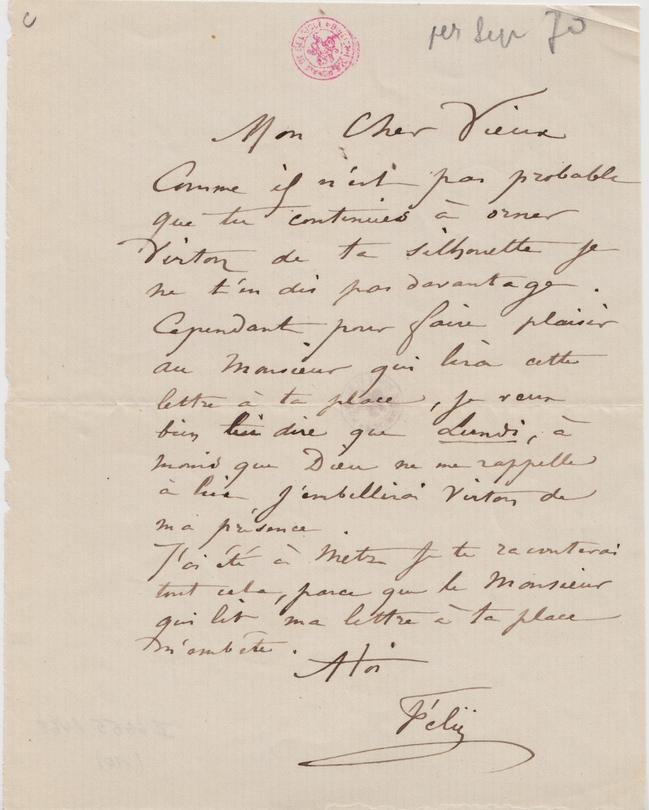 c
Sept 70
Mon Cher Vieux
Comme il n'est pas probable
que tu continues à orner
Virton de ta silhouette je
ne t'en dis pas davantage.
Cependant pour faire plaisir
au Monsieur qui lira cette
lettre à ta place, je veux
bien lui dire que Lundi, à
moins que Dieu ne me rappelle
à lui, j'embellirai Virton de
ma présence.
J'ai été à Metz je te raconterai
tout cela, parce que le Monsieur
qui lit ma lettre à ta place
m'embête.
A toi
Féli